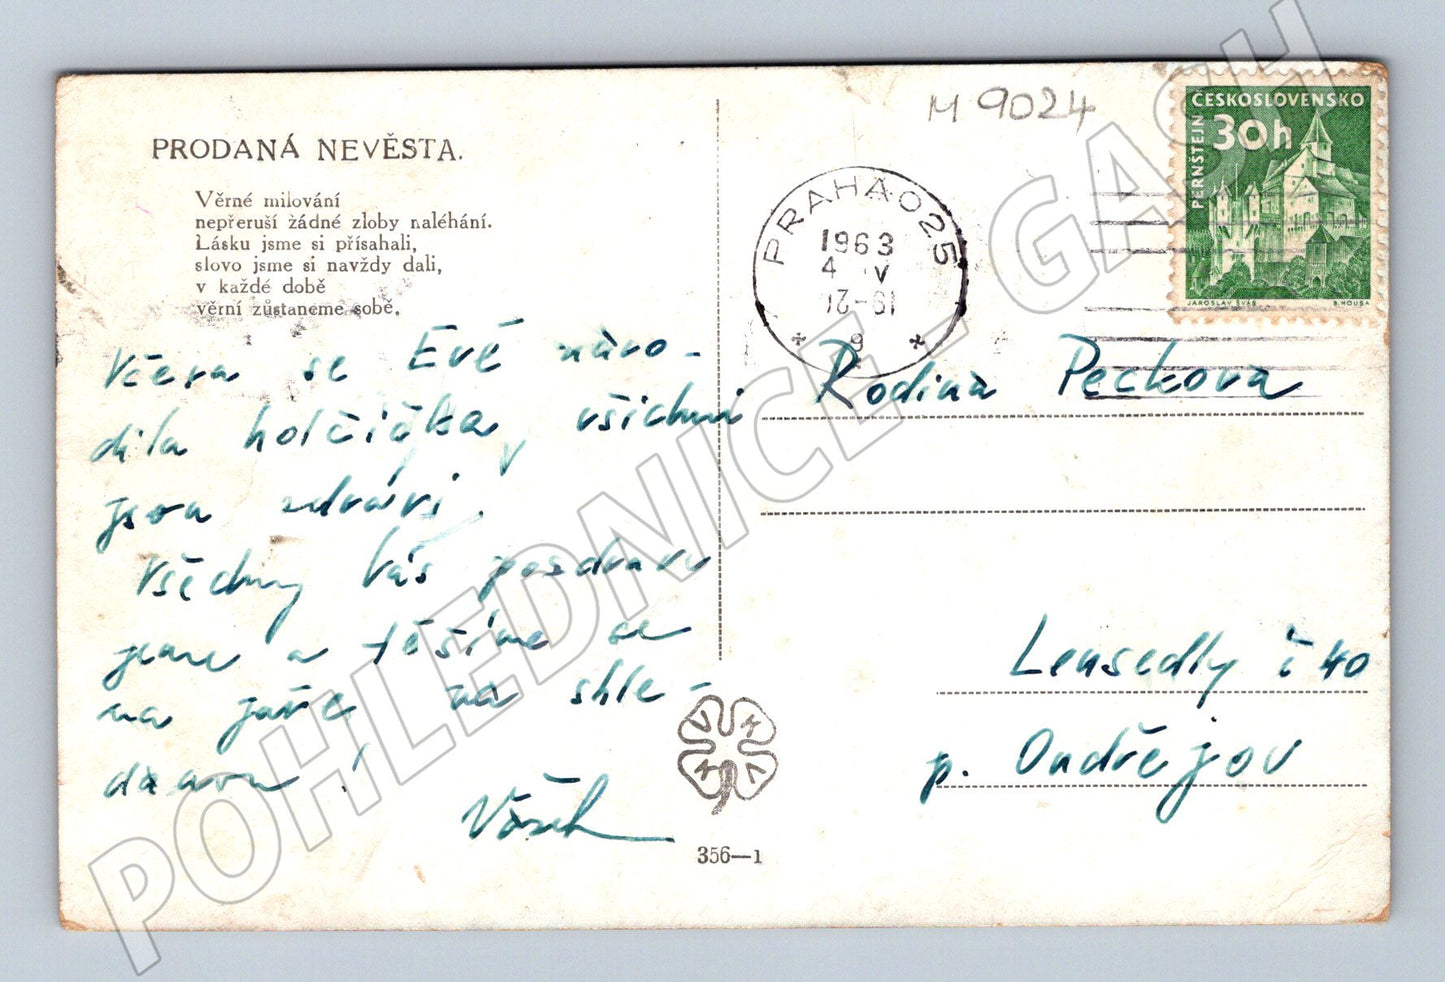 PRODANÁ NEVĚSTA.
Věrné milování
nepřeruší žádné zloby naléhání.
Lásku jsme si přísahali,
slovo jsme si navždy dali,
v každé době
věrní zůstaneme sobě.
Včera se Evě naro-
dila holčička, všichni
jsou zdrávi.
Všechny Vás pozdravu
jeme a těšíme se
na jaře na shle-
danou!
Vašek
356—1
M 9024
PRAHA 025
1963
4 V
9
ČESKOSLOVENSKO
30h
PERNŠTEJN
JAROSLAV ŠVÁB
B. HOUSA
Rodina Peckova
Lensedly č 40
p. Ondřejov
POHLEDNICE - GASH